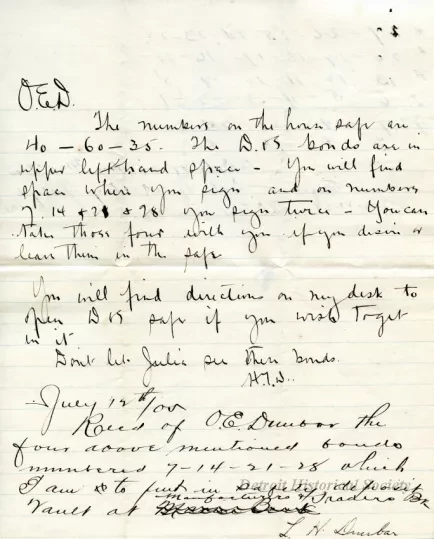 O.E.D.
The numbers on the house safe are
40 - 60 - 35. The D.&S. bonds are in
upper left hand space - You will find
space where you sign and on numbers
7. 14 & 21 & 28 you sign twice - You can
take those four with you if you desire or
leave them in the safe
You will find directions on my desk to
open D&S safe if you wish to get
in it
Dont let Julia see these bonds.
H.T.D.
July 12th/00
Recd of O.E. Dunbar the
four above mentioned bonds
numbered 7-14-21-28 which
I am to put in safety deposit
Vault at
Traders Bk
L H Dunbar
Detroit Historical Society